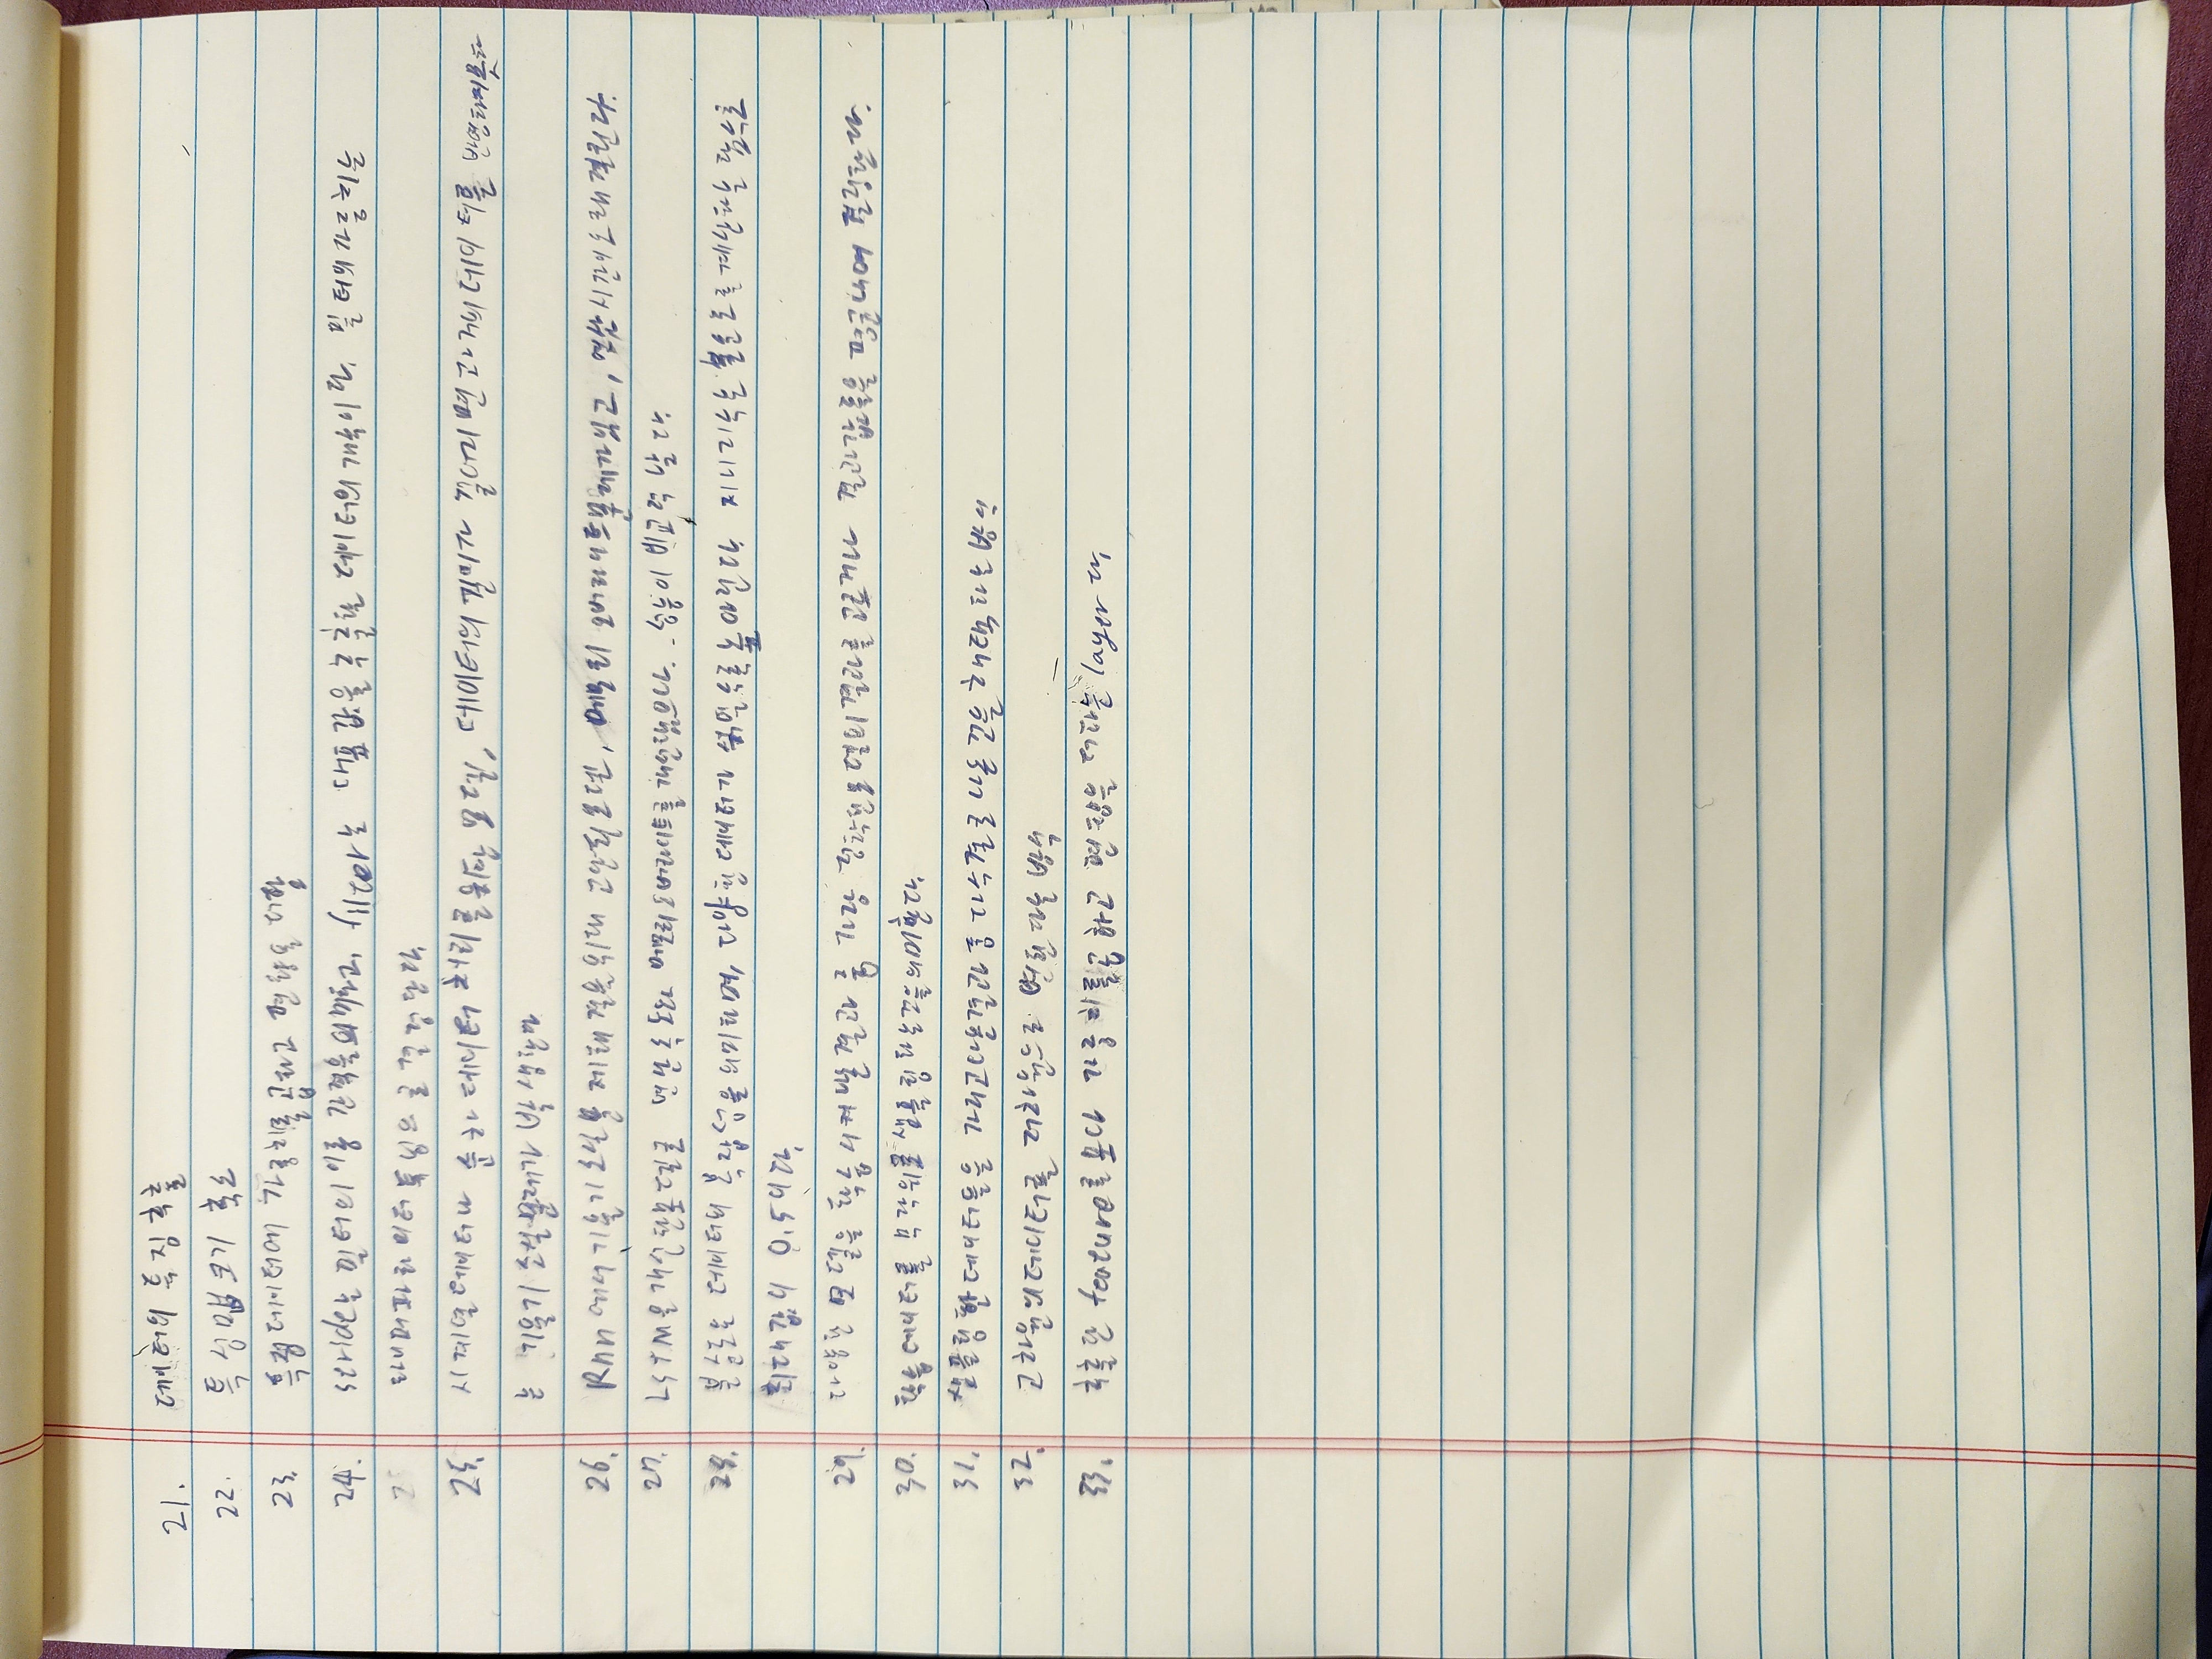 21. 데이터의 특징 추출
22. 특성맵 크기 축소
23. 특정데이터에 가중치를 곱하고 편향을 더함
24. stride는 필터의 이동 간격을 의미하고, filter는 대표값을 추출할 데이터의 개수이다. 필터의 가중치는
하이퍼파라미터 튜닝으로 결정한다.
25. 시계열데이터나 순차데이터 처리를위한 모델, 데이터의 길이가 길어지면 과거의 데이터를 반영하지못하
는 기울기 소실문제가 발생한다
26. Rnn에서 기울기 소실문제해결을 위해 고안된 모델, 메모리 오버라이트문제가있고, 연산시간이 오래걸린다.
27. LSTM을 개선한모델로 연산속도와 메모리오버라이트를 개선했으나. 성능이 비교적 낮다.
28. 불순도는 데이터의 복잡성을 의미하며, 다양한데이터가 섞일수록높아진다. 지니지수는 불순도를계산하는 함수로
최대값이 0.5이다.
29. 다양한 모델을 학습시켜 나온결과 중 가장 정확한모델의결과를고르거나 결과값들을 평균내어 결정한다.
30. 학습데이터를 무작위로 샘플링하는것을의미한다.
31. 샘플링한데이터들을 가지고나온결과 중 다수결로 나온 것을 채택하는 방식
32. 고차원의데이터를 저차원으로 변환하는 방식
33. 추출한 feature를모아 가중치를곱하고 편향을 더하는 layer다.